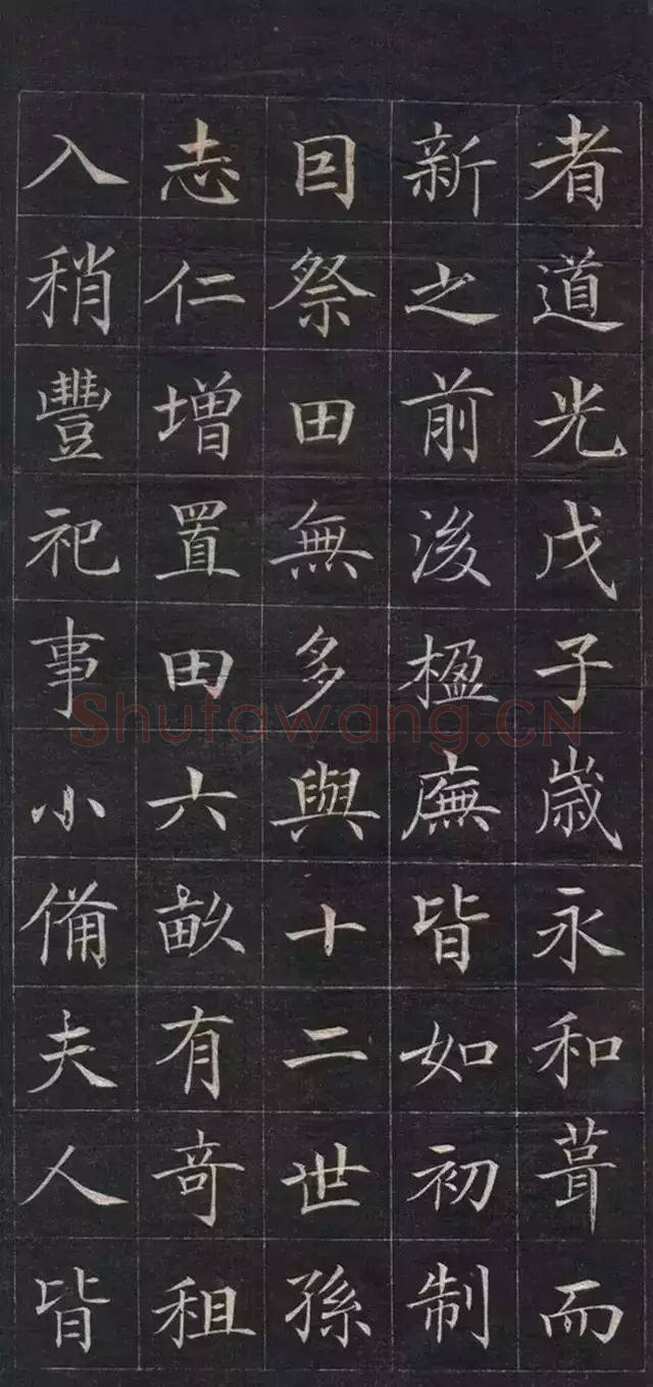 者道光戊子歳永和葺而
新之前後楹廡皆如初制
囙祭田無多與十二世孫
志仁增置田六畝有奇租
入稍豐祀事小備夫人皆
Shufawang.CN